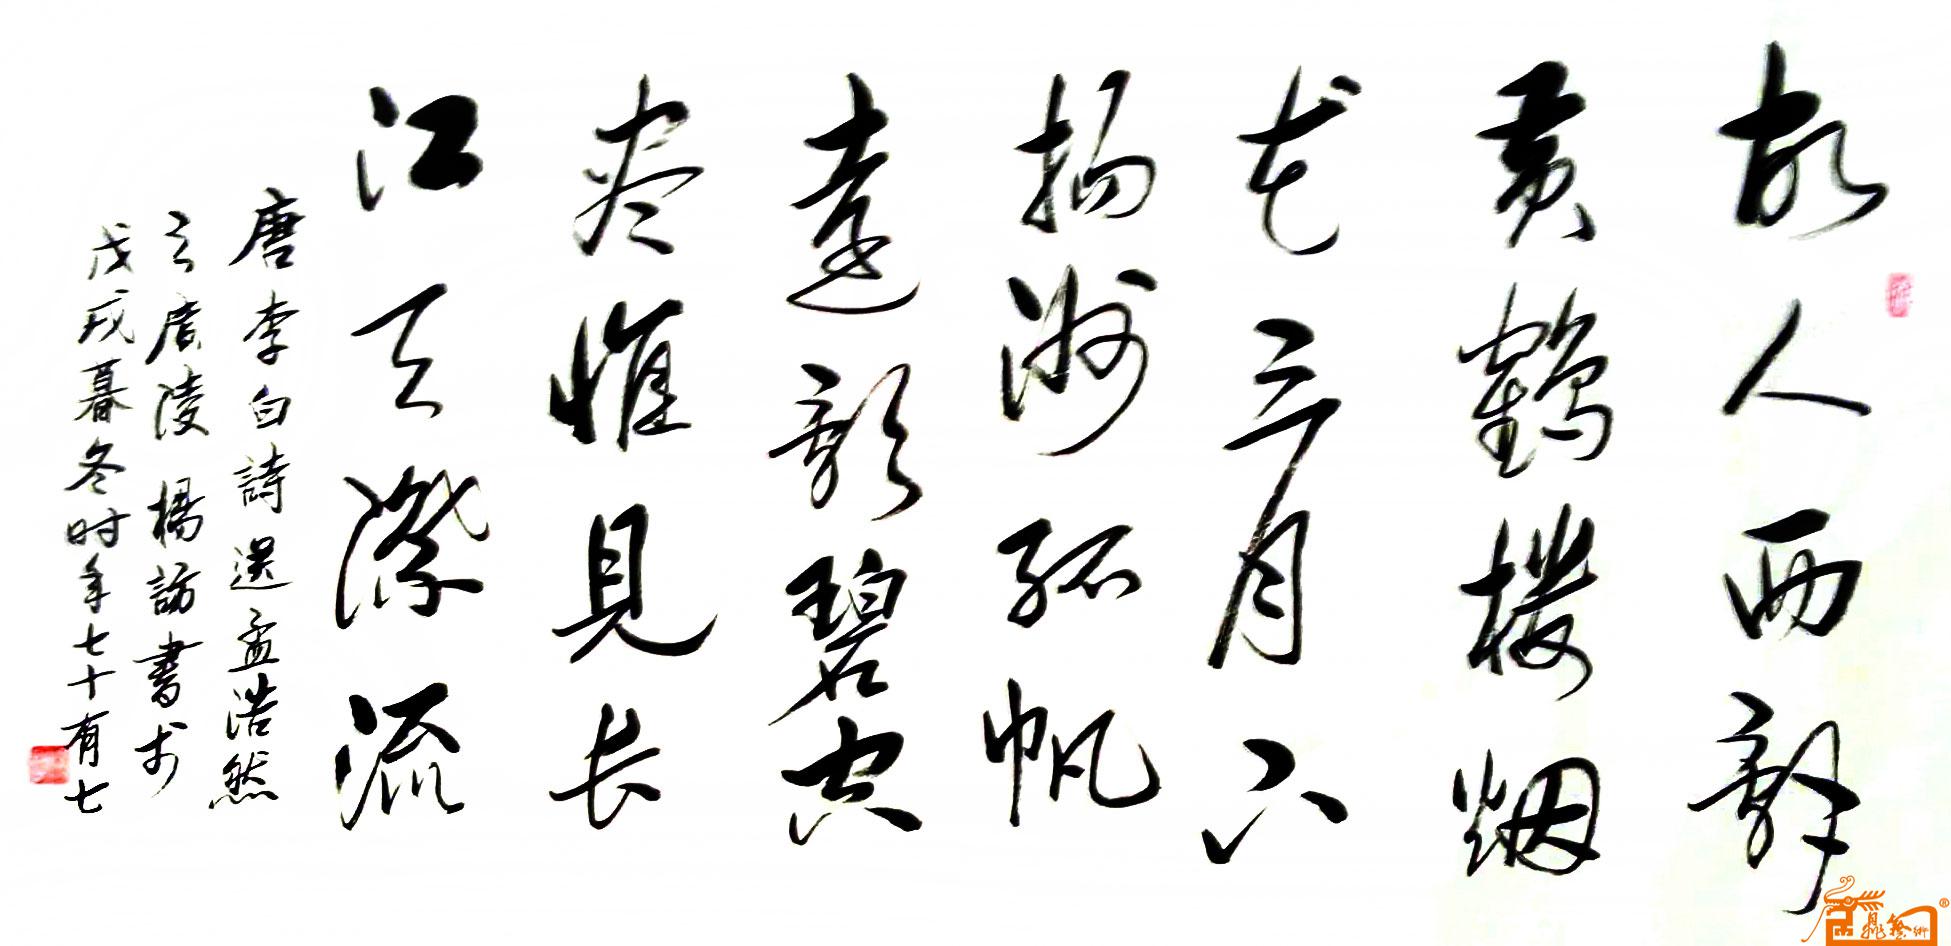 故人西辞
黄鹤楼烟
花三月下
扬洲孤帆
遠影碧空
尽惟見长
江天際流
唐李白詩送孟浩然
之广陵 楊訪書於
戊戌暮冬时年七十有七